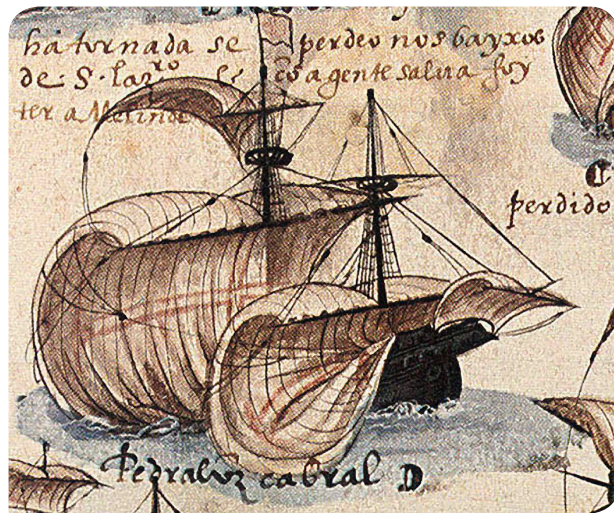 ha tornada se perdeo nos bayxos
de · S · lazro co a gente salva foy
ter a Melinde
perdido
Pedralvz cabral